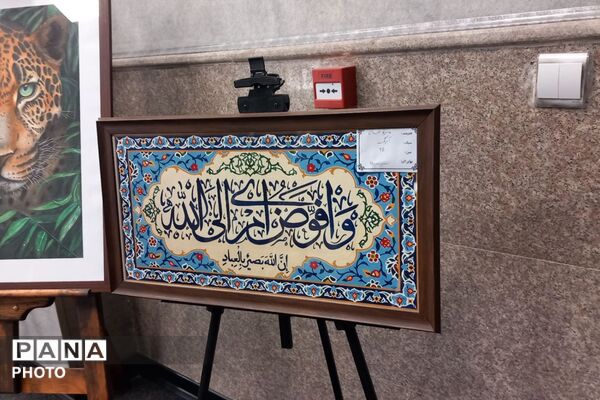 FIRE
وَاُفَوِّضُ اَمْری اِلَی الله
اِنَّ اللهَ بَصیرٌ بِالْعِبادِ
PANA
PHOTO